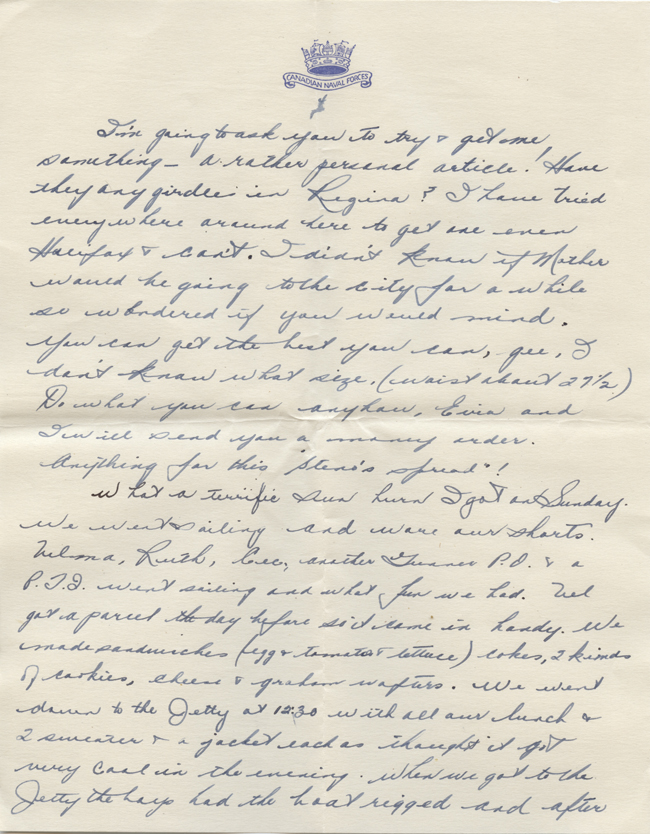 CANADIAN NAVAL FORCES
I'm going to ask you to try & get me
something - a rather personal article! Have
they any girdles in Regina? I have tried
everywhere around here to get one even
Halifax & can't. I didn't know if Mother
would be going to the city for a while
so wondered if you would mind.
You can get the best you can, gee, I
don't know what size. (waist about 27 1/2)
Do what you can anyhow, Evia and
I will send you a money order.
Anything for this "steno's spread"!
What a terrific sun burn I got on Sunday.
We went sailing and wore our shorts.
Velma, Ruth, Cec, another Gunner P.O. & a
P.T.I. went sailing and what fun we had. Vel
got a parcel the day before so it came in handy. We
made sandwiches (egg & tomato & lettuce) cokes, 2 kinds
of cookies, cheese & graham wafers. We went
down to the Jetty at 12:30 with all our lunch &
2 sweater & a jacket each as thought it got
very cool in the evening. When we got to the
Jetty the boys had the boat rigged and after